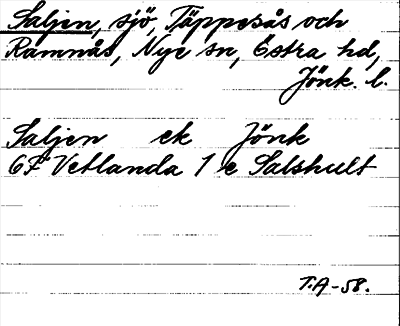 Saljen, sjö, Täppesås och
Ramnås, Nye sn, Östra hd,
Jönk. l.
Saljen ek Jönk
6F Vetlanda 1 e Salshult
T.A-58.